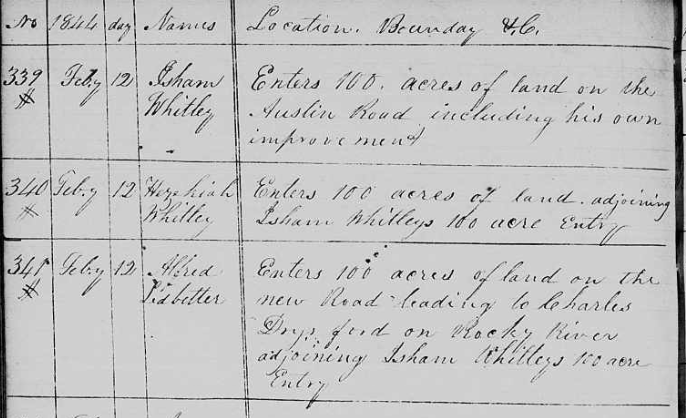 No 1844 day Names Location. Bounday &C.
339 Feb.y 12 Isham Enters 100. acres of land on the
Whitley Austin Road including his own
improvement
340 Feb.y 12 Hezekiah Enters 100 acres of land. adjoining
Whitley Isham Whitleys 100 acre Entry
341 Feb.y 12 Alfred Enters 100 acres of land on the
Lidbetter new Road leading to Charles
Drys ford on Rocky River
adjoining Isham Whitleys 100 acre
Entry